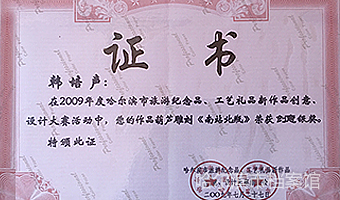 证 书
韩培声：
在2009年度哈尔滨市旅游纪念品、工艺礼品新作品创意、
设计大赛活动中，您的作品葫芦雕刻《南站北瓶》荣获
银奖。
特颁此证
哈尔滨市旅游纪念品、工艺礼品新作品
二〇〇九年七月二十七日
哈尔滨市档案馆